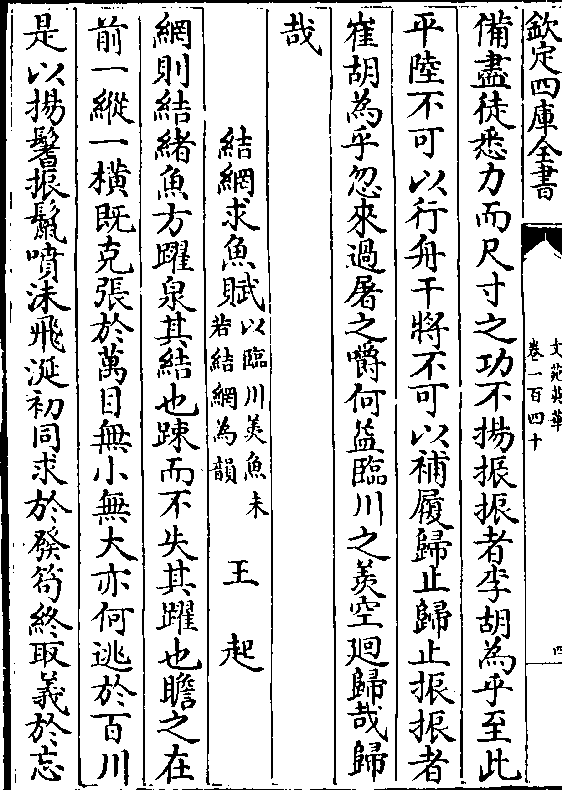 欽定四庫全書
文苑英華
卷一百四十
四
備盡徒悉力而尺寸之功不揚振振者李胡為乎至此
平陸不可以行舟干將不可以補履歸止歸止振振者
崔胡為乎忽來過屠之嚼何益臨川之羨空廻歸哉歸
哉
結網求魚賦以臨川羡魚未
若結網為韻
王起
網則結緒魚方躍泉其結也踈而不失其躍也瞻之在
前一縱一横既克張於萬目無小無大亦何逃於百川
是以揚鬐振鬛噴沫飛涎初同求於發笱終取義於忘